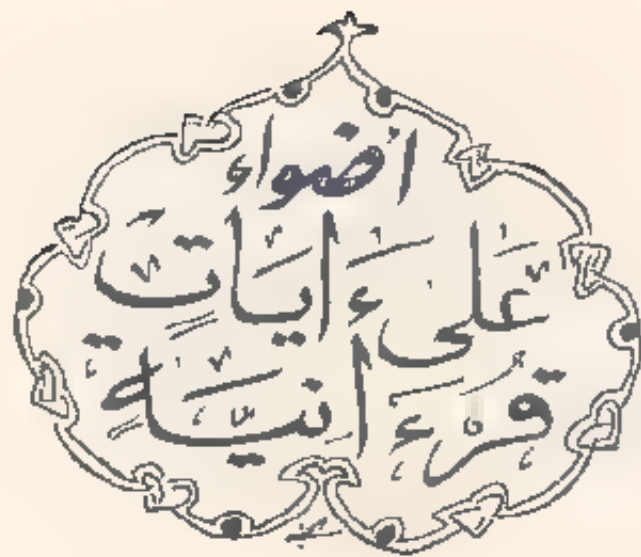 أضواء
عَلى ءَايَاتٍ
قُرْءَانيَةٍ